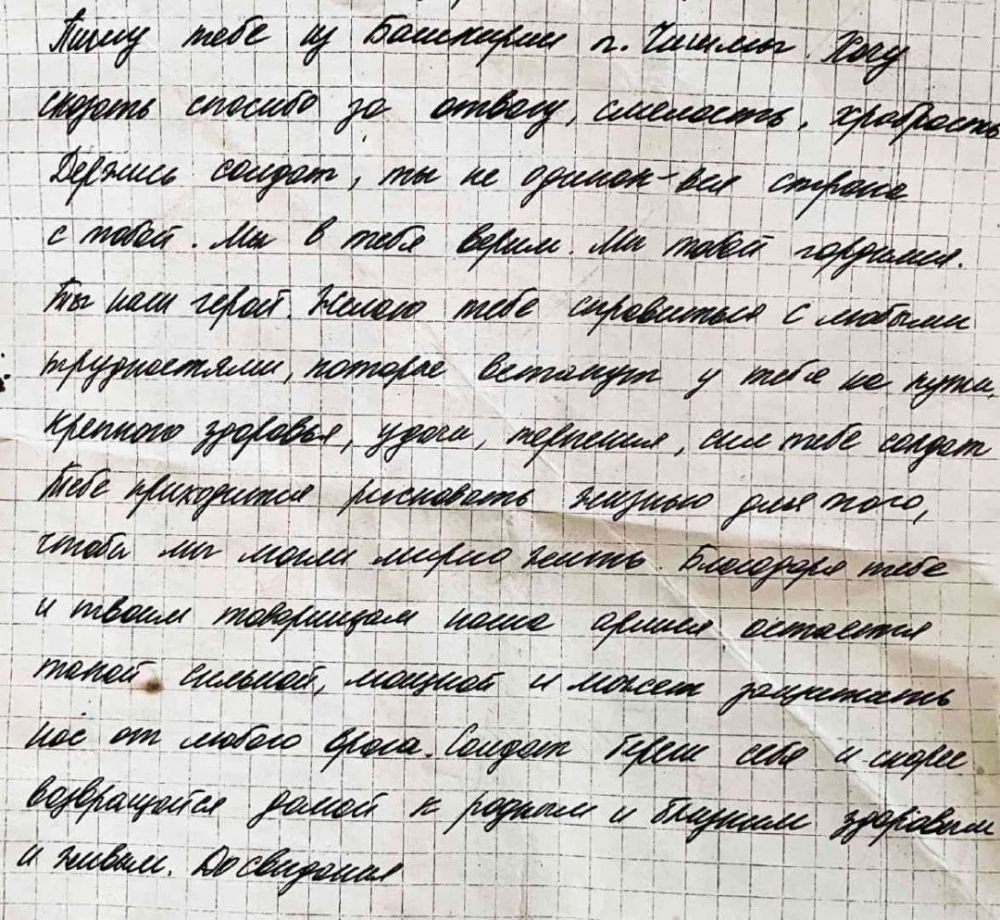 Пишу тебе из Башкирии п. Чишмы. Хочу
сказать спасибо за отвагу, смелость, храбрость
Держись солдат, ты не одинок - вся страна
с тобой. Мы в тебя верим. Мы тобой гордимся.
Ты наш герой. Желаю тебе справиться с любыми
трудностями, которые встанут у тебя на пути,
крепкого здоровья, удачи, терпения, сил тебе солдат
Тебе приходится рисковать жизнью для того,
чтобы мы могли мирно жить. Благодаря тебе
и твоим товарищам наша армия остается
такой сильной, мощной и может защищать
нас от любого врага. Солдат береги себя и скорее
возвращайся домой к родным и близким здоровым
и живым. До свидания